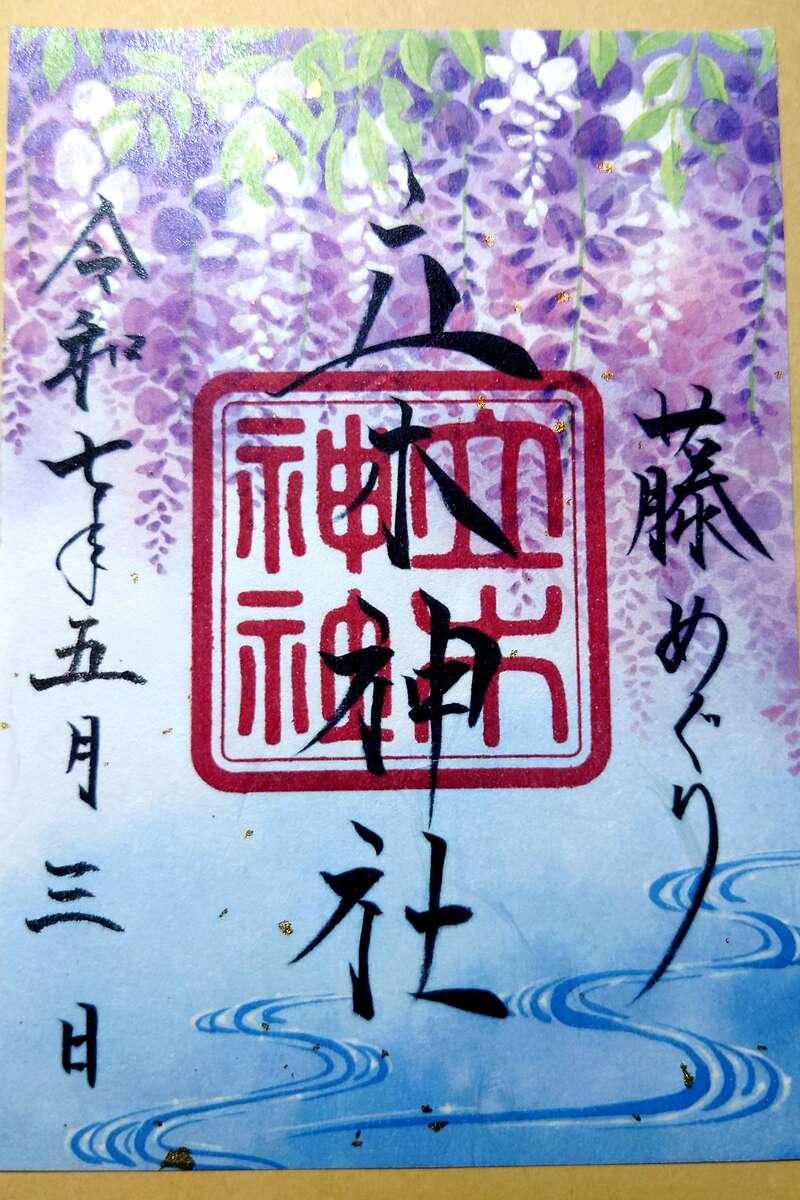 藤めぐり
立木神社
立木
神社
令和七年五月三日